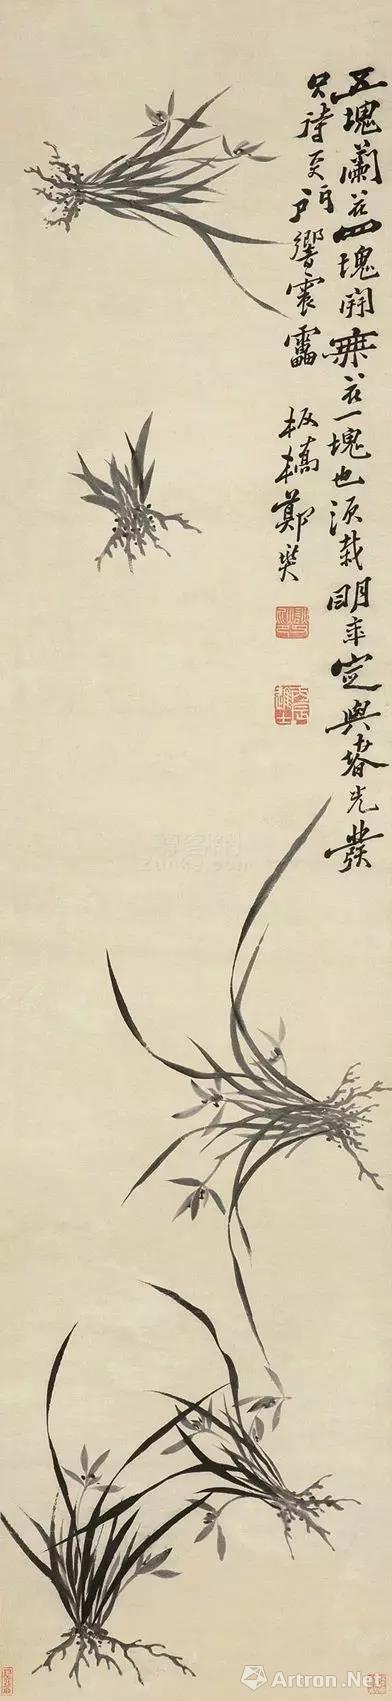 五塊蘭花四塊開無花一塊也須栽明年定與春光發
只待天門響震雷
板橋鄭燮
丙辰進士
Artron.Net